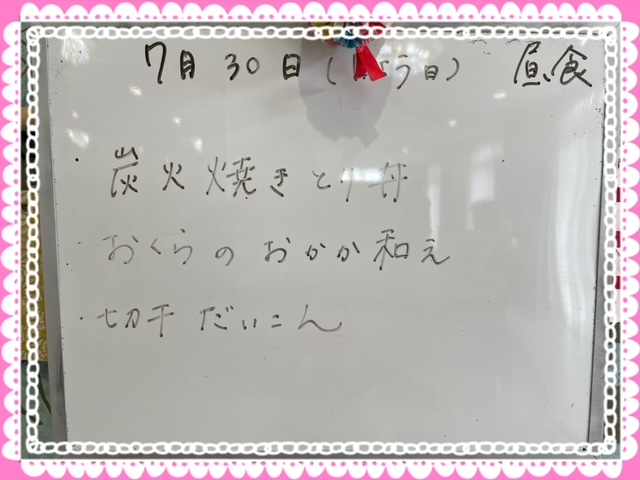 7月30日(ぼう日) 昼食
・炭火焼きとり丼
・おくらのおかか和え
・切干だいこん